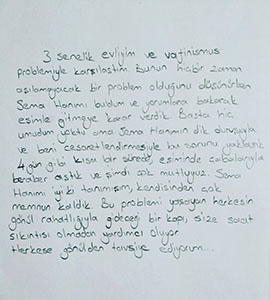 3 senelik evliyim ve vajinismus
problemiyle karşılaştım. Bunun hiçbir zaman
aşılamayacak bir problem olduğunu düşünürken
Sema Hanımı buldum ve yorumlara bakarak
eşimle gitmeye karar verdik. Başta hiç
umudum yoktu ama Sema Hanımın dik duruşuyla
ve beni cesaretlendirmesiyle bu sorunu yaklaşık
4 gün gibi kısa bir sürede, eşiminde çabalarıyla
beraber aştık ve şimdi çok mutluyuz. Sema
Hanımı iyiki tanımışım, kendisinden çok
memnun kaldık. Bu problemi yaşayan herkesin
gönül rahatlığıyla gideceği bir kapı, size saat
sıkıntısı olmadan yardımcı oluyor
Herkese gönülden tavsiye ediyorum...